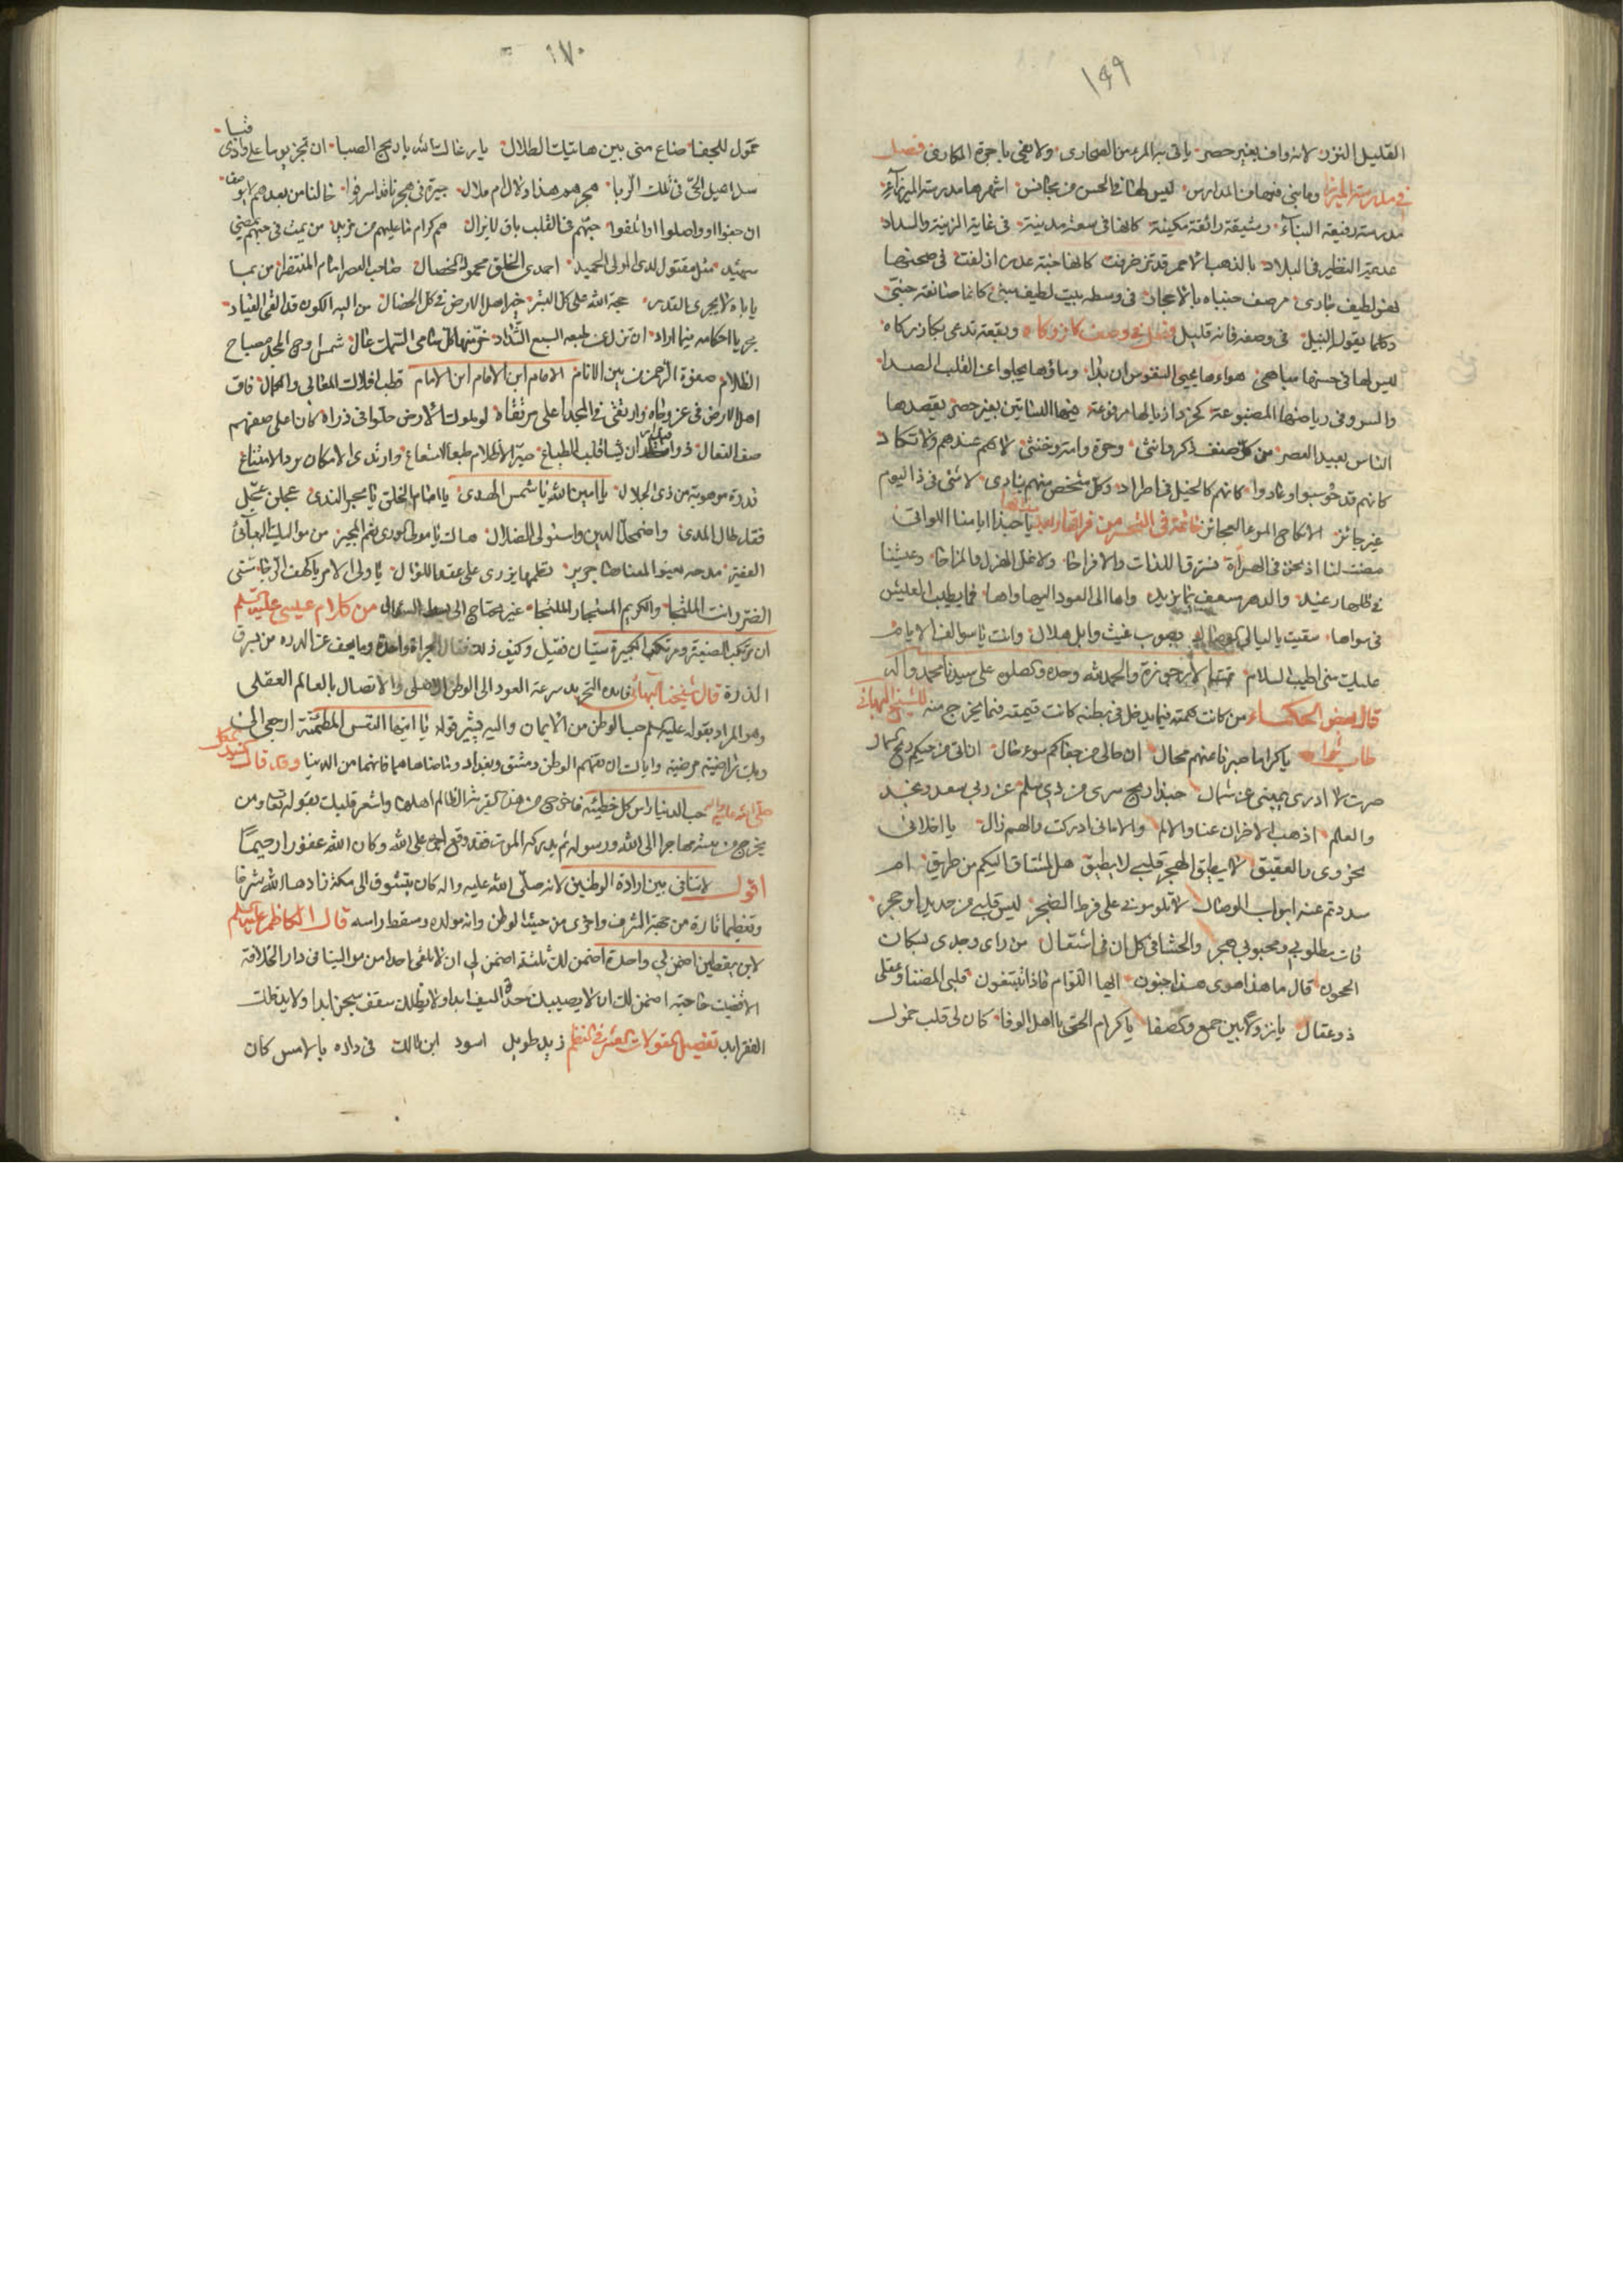 ١٦٩
القليل النزر لانه واف بغير حصر ياتى به المرء من الصحارى ولا يفى باجرة المكارى فصل
فى مدرسة الميرزا وما بنى فيها من المدارس ليس لها فى الحسن من مجانس اشهرها مدرسة الميرزاء
مدرسة رفيعة البناء رشيقة رائقة مكينة كانها فى سعة مدينة فى غاية الزينة والسداد
عديمة النظير فى البلاد بالذهب الاحمر قد تزخرفت كانها جنة عدن ازلفت فى صحنها
نهر لطيف جارى مرصف جنباه بالاحجار فى وسطه بيت لطيف مبنى كانما صانعه جنى
وكلما يقول النبيل فى وصفه فانه قليل فصل فى وصف كازركاه وبقعة تدعى بكازركاه
ليس لها فى حسنها مباهى هواءها يحيى النفوس ان بدا وماؤها يجلوا عن القلب الصدا
والسرو فى رياضها المصنوعة كخرد اذيالها مرفوعة فيها البساتين بغير حصر يقصدها
الناس بعيد العصر من كل صنف ذكر وانثى وحرة وامة وخنثى لا هم عندهم ولا نكاد
كانهم قد حوسبوا وعادوا كانهم كالخيل فى اطراد وكل شخص منهم ينادى لا شئ فى ذا اليوم
غير جائز الا نكاح المرء العجائز خاتمة فى التحسر من فراقها وبعد يا حبذا ايامنا اللواتى
مضت لنا اذ نحن فى الهراة نسترق اللذات والافراحا ولا نمل الهزل والمزاحا وعيشنا
فى ظلها رغيد والدهر مسعف بما نريد واها الى العود اليها واها فما يطيب العيش
فى سواها سقيت يا ليالى بصوب غيث وابل هلال وانت يا سوالف الايام
عليك منى اطيب السلام تمت الارجوزة والحمد لله وحده وصلى على سيدنا محمد وآله
قال بعض الحكماء من كانت همته فيما يدخل فى بطنه كانت قيمته فيما يخرج منه للشيخ البهائى
طاب ثراه يا كراما صبرنا عنهم محال ان حالى من جفاكم سوء حال ان اتى من حيكم ريح شمال
صرت لا ادرى يمينى عن شمال حبذا ريح سرى من ذى سلم عن ربى سعد ونجد
والعلم اذهب الاحزان عنا والالم والامانى ادركت والهم زال يا اخلائى
بحزوى والعقيق لا يطيق الهجر قلبى لا يطيق هل لمشتاق اليكم من طريق ام
سددتم عنه ابواب الوصال لا تلومونى على فرط الضجر ليس قلبى من حديد او حجر
فات مطلوبى ومحبوبى هجر والحشا فى كل ان فى اشتعال من راى وجدى لسكان
الحجون قال ما هذا هوى هذا جنون ايها اللوام ماذا تبتغون قلبى المضنا وعقلى
ذو عقال يا نزولا بين جمع وكصفا يا كرام الحى يا اهل الوفا كان لى قلب حمول
١٧٠
حمول للجفا ضاع منى بين هاتيك الطلال يا رعاك الله يا ريح الصبا ان تجز يوما على وادى قبا
سل اهيل الحى فى تلك الربا هجرهم هذا دلال ام ملال جيرة فى هجرنا قد اسرفوا حالنا من بعدهم لا يوصف
ان جفوا او واصلوا او اتلفوا حبهم فى القلب باق لا يزال هم كرام ما عليهم من مزيد من يمت فى حبهم يمضى
شهيد مثل مقتول لدى المولى الحميد احمدى الخلق محمود الخصال صاحب العصر امام المنتظر من بما
ياباه لا يجرى القدر حجة الله على كل البشر خير اهل الارض فى كل الخصال من اليه الكون قد القى القياد
مجريا احكامه فيما اراد ان تزل عن طبعه السبع الشداد خر منها كل سامى السمك عال شمس اوج المجد مصباح
الظلام صفوة الرحمن من بين الانام الامام ابن الامام ابن الامام قطب افلاك المعالى والكمال فاق
اهل الارض فى عز وجاه وارتقى فى المجد اعلى مرتقاه لو ملوك الارض حلوا فى ذراه كان اعلى صفهم
صف النعال ذو اقتدار ان يشا قلب الطباع صير الاظلام طبعا لشعاع وارتدى الامكان برد الامتناع
قدرة موهوبة من ذى الجلال يا امين الله يا شمس الهدى يا امام الخلق يا بحر الندى عجلن عجل
فقد طال المدى واضمحل الدين واستولى الضلال هاك يا مولى الورى نعم المجير من مواليك البهائى
الفقير مدحة يعنو لمعناها جرير نظمها يزرى على عقد اللؤال يا ولى الامر يا كهف الرجا مسنى
الضر وانت الملتجا والكريم المستجار الملتجا غير محتاج الى بسط السؤال من كلام عيسى عليه السلم
ان مرتكب الصغيرة ومرتكب الكبيرة سيان فقيل وكيف ذلك فقال الجراة واحدة وما يعف عن الدرة من يسرق
الذرة قال شيخنا البهائى فائدة التجريد سرعة العود الى الوطن الاصلى والاتصال بالعالم العقلى
وهو المراد بقوله عليه السلم حب الوطن من الايمان واليه يشير قوله يا ايتها النفس المطمئنة ارجعى الى
ربك راضية مرضية واياك ان تفهم الوطن دمشق وبغداد وما ضاهاهما فانهما من الدنيا وقد قال سيد الكل
صلى الله عليه واله حب الدنيا راس كل خطيئة فاخرج من هذه القرية الظالم اهلها واشعر قلبك بقوله تعالى ومن
يخرج من بيته مهاجرا الى الله ورسوله ثم يدركه الموت فقد وقع اجره على الله وكان الله غفورا رحيما
اقول لا تنافى بين ارادة الوطنين لانه صلى الله عليه واله كان يتشوق الى مكة زادها الله شرفا
وتعظيما تارة من جهة الشرف واخرى من حيث الوطن وانه مولده ومسقط راسه قال الكاظم عليه السلم
لابن يقطين اضمن لى واحدة اضمن لك ثلثة اضمن لى ان لا تلقى احدا من موالينا فى دار الخلافة
الا قضيت حاجته اضمن لك ان لا يصيبك حدة السيف ابدا ولا يظلك سقف سجن ابدا ولا يدخلك
الفقر ابدا تفصيل المقولات العشر فى النظم زيد طويل اسود ابن مالك فى داره بالامس كان